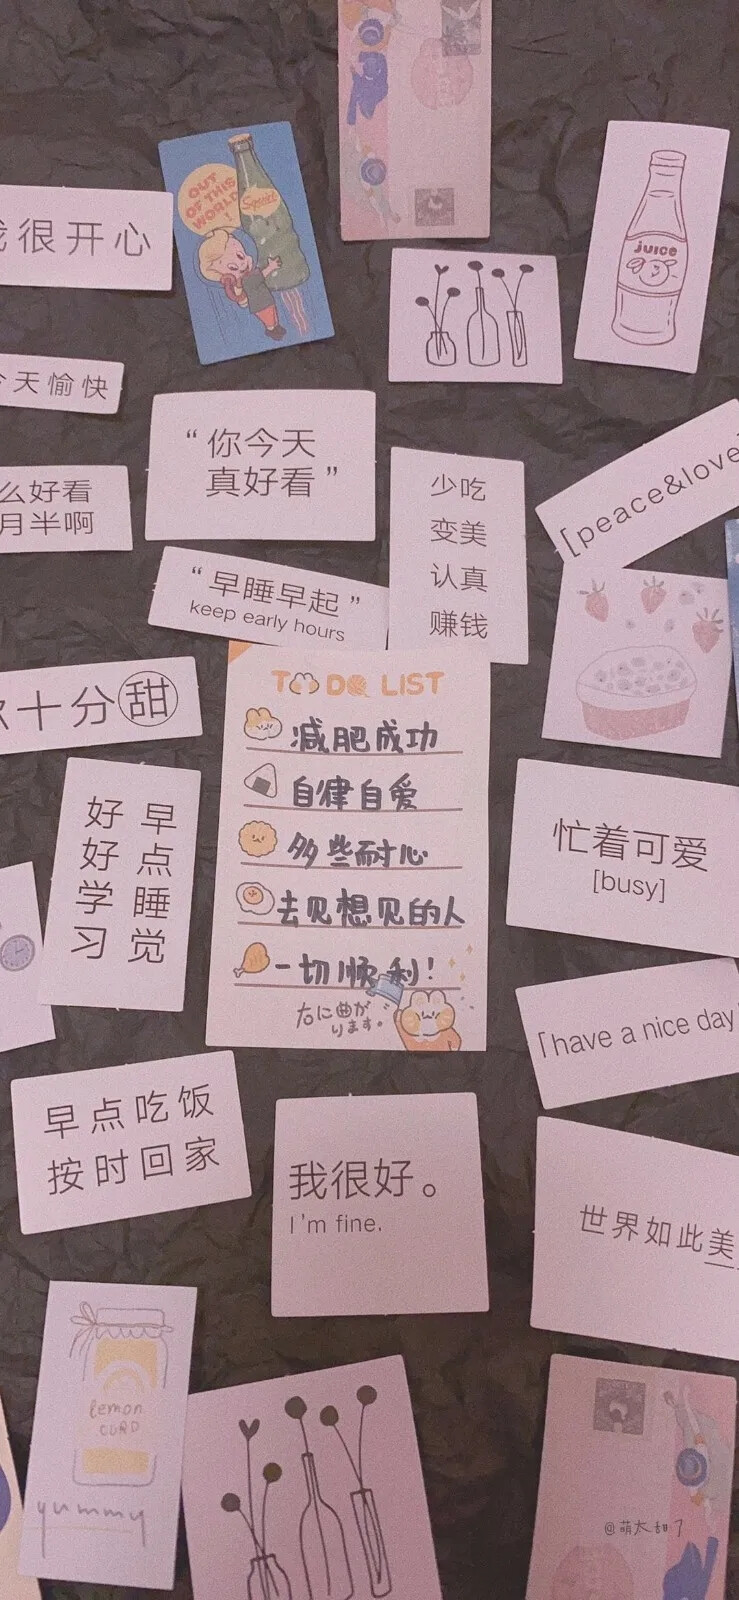 OUT
OF THIS
WORLD
!
Squirt
juice
很开心
天愉快
“你今天
真好看”
么好看
月半啊
少吃
变美
认真
赚钱
[peace&love
“早睡早起”
keep early hours
十分甜
TO DO LIST
减肥成功
自律自爱
多些耐心
去见想见的人
一切顺利!
右に曲が
ります。
早点睡觉
好好学习
忙着可爱
[busy]
「have a nice day
早点吃饭
按时回家
我很好。
I'm fine.
世界如此美
lemon
CURD
yummy
@萌太甜了